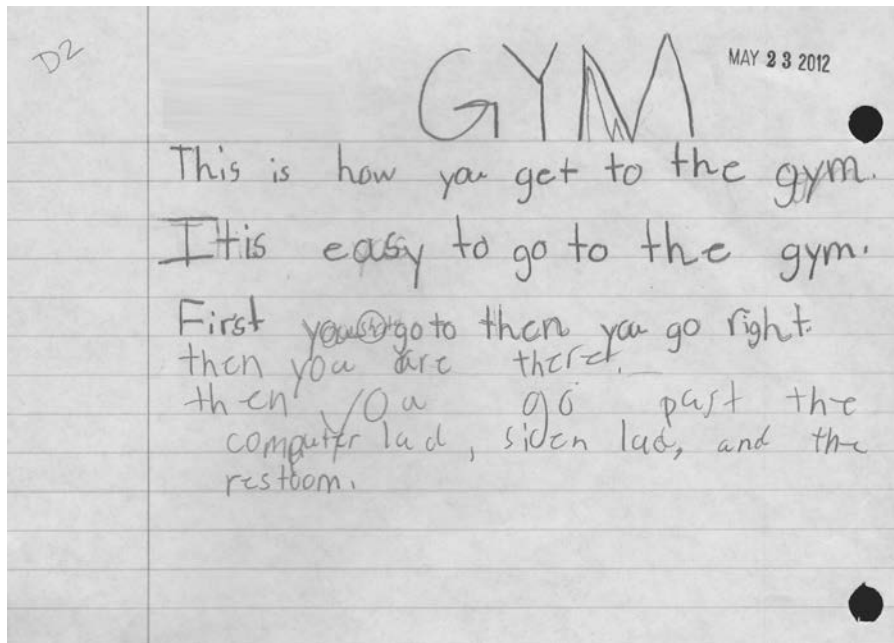 D2
GYM
MAY 23 2012
This is how you get to the gym.
It is easy to go to the gym.
First you go to then you go right.
then you are there.
then you go past the
computer lad, siden lad, and the
restoom.